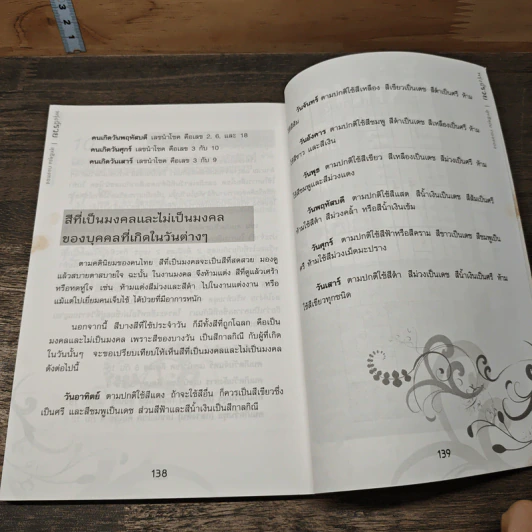 คนเกิดวันพฤหัสบดี เลขนำโชค คือเลข 2, 6, และ 18
คนเกิดวันศุกร์ เลขนำโชค คือเลข 3 กับ 10
คนเกิดวันเสาร์ เลขนำโชค คือเลข 3 กับ 9
สีที่เป็นมงคลและไม่เป็นมงคล
ของบุคคลที่เกิดในวันต่างๆ
ตามคตินิยมของคนไทย สีที่เป็นมงคลจะเป็นสีที่สดสวย มองดู
แล้วสบายตาสบายใจ ฉะนั้น ในงานมงคล จึงห้ามแต่ง สีที่ดูแล้วเศร้า
หรือหดหู่ใจ เช่น ห้ามแต่งสีม่วงและสีดำ ไปในงานแต่งงาน หรือ
แม้แต่ไปเยี่ยมคนเจ็บไข้ ได้ป่วยที่มีอาการหนัก
นอกจากนี้ สีบางสีที่ใช้ประจำวัน ก็มีทั้งสีที่ถูกโฉลก คือเป็น
มงคลและไม่เป็นมงคล เพราะสีของบางวัน เป็นสีกาลกิณี กับผู้ที่เกิด
ในวันนั้นๆ จะขอเปรียบเทียบให้เห็นสีที่เป็นมงคลและไม่เป็นมงคล
ดังต่อไปนี้
วันอาทิตย์ ตามปกติใช้สีแดง ถ้าจะใช้สีอื่น ก็ควรเป็นสีเขียวซึ่ง
เป็นศรี และสีชมพูเป็นเดช ส่วนสีฟ้าและสีน้ำเงินเป็นสีกาลกิณี
138
วันจันทร์ ตามปกติใช้สีเหลือง สีเขียวเป็นเดช สีดำเป็นศรี ห้าม
วันอังคาร ตามปกติใช้สีชมพู สีดำเป็นเดช สีเหลืองเป็นศรี ห้าม
และสีเงิน
วันพุธ ตามปกติใช้สีเขียว สีเหลืองเป็นเดช สีม่วงเป็นศรี ห้าม
ใช้สีชมพูและสีม่วงแดง
วันพฤหัสบดี ตามปกติใช้สีแสด สีน้ำเงินเป็นเดช สีส้มเป็นศรี
ห้ามใช้สีดำ สีม่วงคล้ำ หรือสีน้ำเงินเข้ม
วันศุกร์ ตามปกติใช้สีฟ้าหรือสีคราม สีขาวเป็นเดช สีชมพูเป็น
ศรี ห้ามใช้สีม่วงเม็ดมะปราง
วันเสาร์ ตามปกติใช้สีดำ สีม่วงเป็นเดช สีน้ำเงินเป็นศรี ห้าม
ใช้สีเขียวทุกชนิด
139